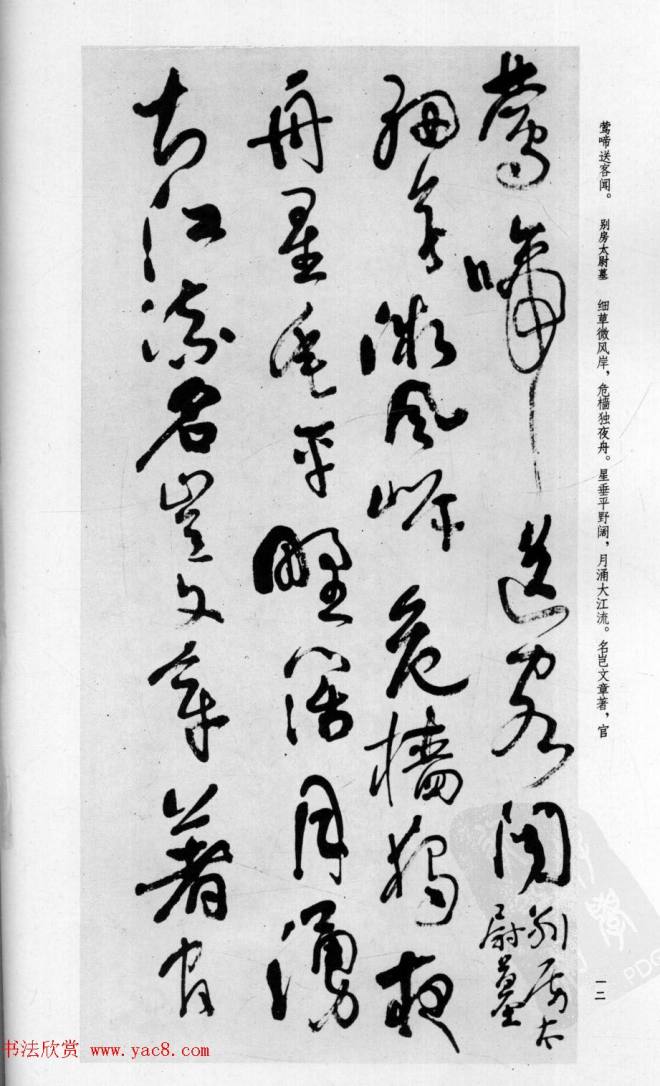 莺啼送客闻。 别房太尉墓 细草微风岸，危樯独夜舟。星垂平野阔，月涌大江流。名岂文章著，官
鶯啼送客聞別房太
尉墓
細草微風岸危檣獨夜
舟星垂平野闊月湧
大江流名豈文章著官
一二
书法欣赏 www.yac8.com